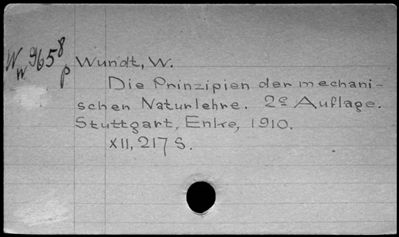 Ww 9658 p
Wundt, W.
Die Prinzipien der mechani-
schen Naturlehre. 2e Auflage.
Stuttgart, Enke, 1910.
XII, 217 S.